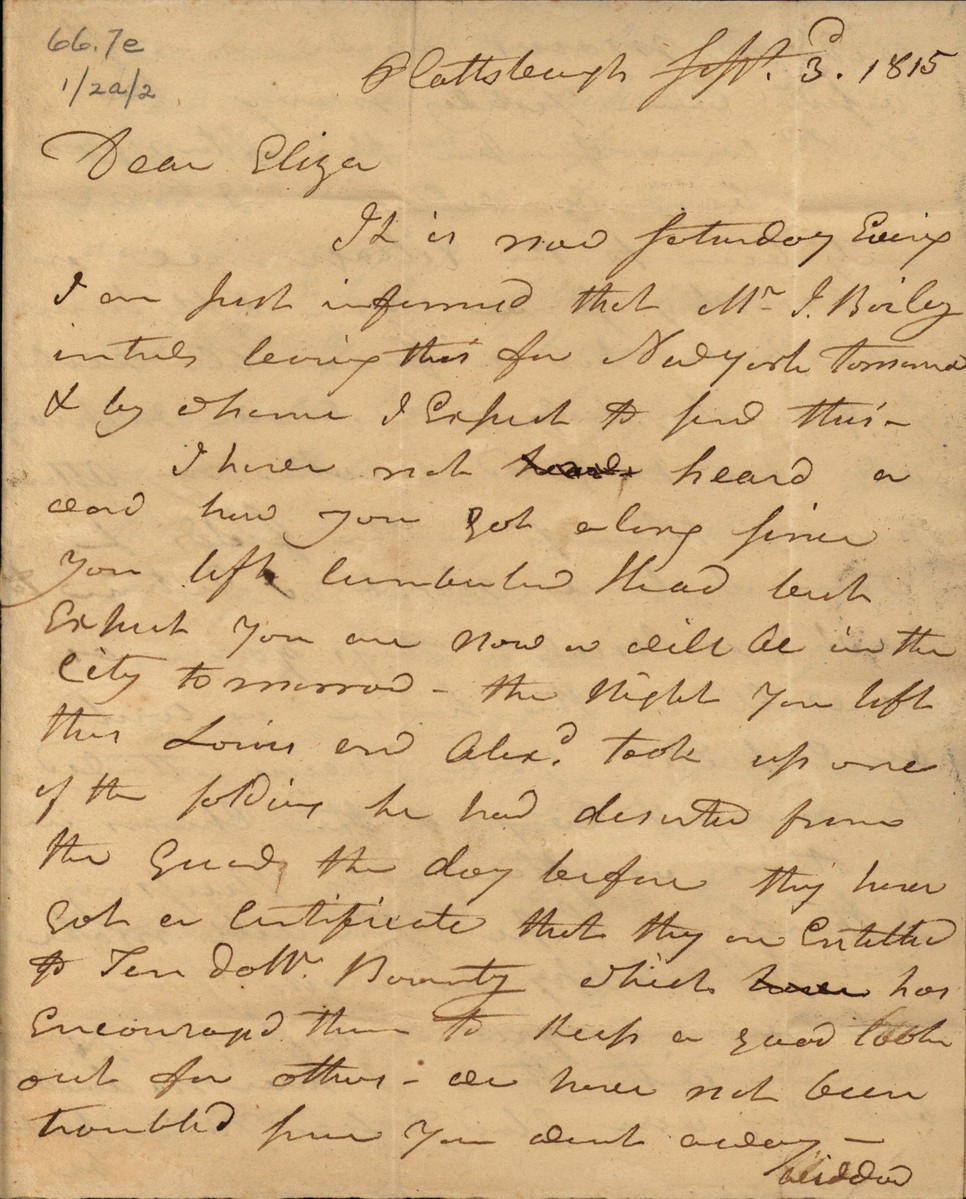 66.7e
1/2a/2
Plattsburgh Sept. 3.d 1815
Dear Eliza
It is now Saturday Eveing
I am just informed that Mr J. Baily
intends leaving this for New york tomorrow
& by whome I Expect to send this -
I have not heard a
word how you got along since
you left Cumberland Head but
Expect you are now or will be in the
City tomorrow - the Night you left
this Louis and Alexd. took up one
of the soldiers he had deserted from
the Guard the day before they have
got a Certificate that they are Entitled
to Ten Dollr. Bounty which has
Encouragd them to Keep a good look
out for others - we have not been
troubled since you went away -
widdow